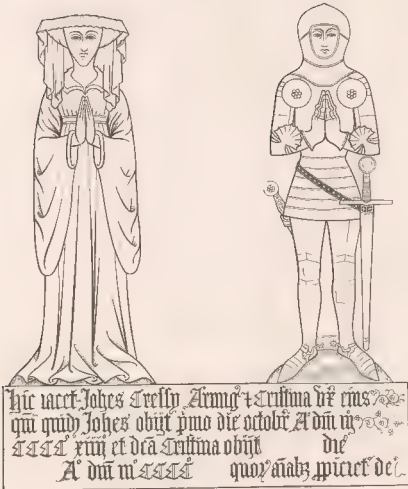 Hic iacet Johes Cressy Armig' & Cristina Ux' eius
qui quid' Johes obijt p'mo die octobr' A° dm m°
CCCC° xiiij et dca Cristina obijt die
A° dm m° CCCC quor' aiabz ppiciet' de'